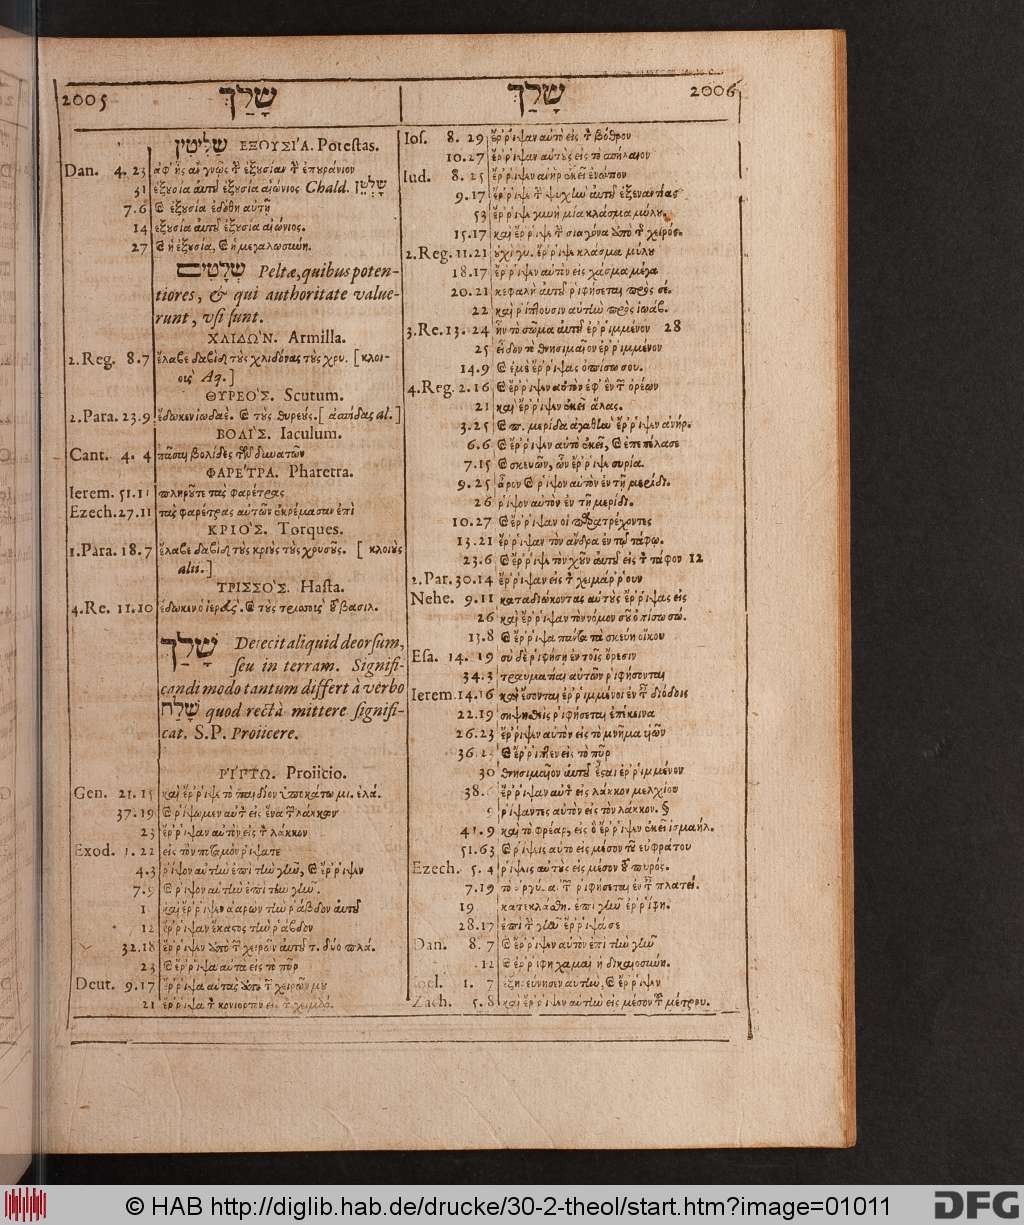 2005 שָׁלַךְ
שַׁלִּיטִין ΕΞΟΥΣΙ´Α. Poteſtas.
Dan. 4. 23 ἀφ' ἧς ἂν γνῷς τ̀ ἐξουσίαν τ̀ ἐπουράνιον
31 ἐξουσία αὐτοῦ ἐξουσία αἰώνιος Chald. שָׁלְטָן
7.6 καὶ ἐξουσία ἐδόθη αὐτῇ
14 ἐξουσία αὐτοῦ ἐξουσία αἰώνιος.
27 καὶ ἡ ἐξουσία, καὶ ἡ μεγαλωσύνη.
שְׁלָטִים Peltæ, quibus poten-
tiores, & qui authoritate value-
runt, vſi ſunt.
ΧΛΙΔΩ´Ν. Armilla.
2. Reg. 8.7 ἔλαβε δαβὶδ τοὺς χλιδόνας τοὺς χρυ. [κλοι-
οὺς Aq.]
ΘΥΡΕΟ´Σ. Scutum.
2. Para. 23.9 ἔδωκεν ἰωδαὲ. καὶ τοὺς θυρεούς. [ἀσπίδας al.]
ΒΟΛΙ´Σ. Iaculum.
Cant. 4. 4 πᾶσαι βολίδες τῶν δυνατῶν
ΦΑΡΕ´ΤΡΑ. Pharetra.
Ierem. 51.11 πληροῦτε τὰς φαρέτρας
Ezech. 27.11 τὰς φαρέτρας αὐτῶν ἐκρέμασαν ἐπὶ
ΚΡΙΟ´Σ. Torques.
1. Para. 18.7 ἔλαβε δαβὶδ τοὺς κριοὺς τοὺς χρυσοῦς. [κλοιοὺς
alii.]
ΤΡΙΣΣΟ´Σ. Haſta.
4. Re. 11.10 ἔδωκεν ὁ ἱερεὺς. καὶ τοὺς τρισσοὺς τοῦ βασιλ.
שָׁלַךְ Deiecit aliquid deorſum,
ſeu in terram. Signifi-
candi modo tantum differt à verbo
שָׁלַח quod rectà mittere ſignifi-
cat. S.P. Proiicere.
ΡΙ´ΠΤΩ. Proiicio.
Gen. 21. 15 καὶ ἔρριψε τὸ παιδίον ὑποκάτω μι. ἐλά.
37.19 καὶ ῥίψωμεν αὐτ̀ εἰς ἕνα τ̀ λάκκων
23 ἔρριψαν αὐτὸν εἰς τ̀ λάκκον
Exod. 1. 22 εἰς τὸν ποταμὸν ῥίψατε
4.3 ῥίψον αὐτὴν ἐπὶ τὴν γῆν, καὶ ἔρριψεν
7.9 καὶ ῥίψον αὐτὴν ἐπὶ τὴν γῆν.
1 καὶ ἔρριψεν ἀαρὼν τὴν ῥάβδον αὐτοῦ
12 ἔρριψαν ἕκαστος τὴν ῥάβδον
32.18 ἔρριψεν ἀπὸ τ̃ χειρῶν αὐτοῦ τ. δύο πλά.
23 καὶ ἔρριψα αὐτὰ εἰς τὸ πῦρ
Deut. 9.17 ἔρριψα αὐτὰς ἀπὸ τ̃ χειρῶν μου
21 ἔρριψα τ̀ κονιορτὸν εἰς τ̀ χειμάρ.
שָׁלַךְ 2006
Ioſ. 8. 29 ἔρριψαν αὐτὸ εἰς τ̀ βόθρον
10.27 ἔρριψαν αὐτοὺς εἰς τὸ σπήλαιον
Iud. 8. 25 ἔρριψεν ἀνὴρ ἐκεῖ ἐνώπιον
9.17 ἔρριψε τ̀ ψυχὴν αὐτοῦ ἐξεναντίας
53 ἔρριψε γυνὴ μία κλάσμα μύλου.
15.17 καὶ ἔρριψε τ̀ σιαγόνα ἀπὸ τ̃ χειρός.
2. Reg. 11.21 οὐχὶ γυ. ἔρριψε κλάσμα μύλου
18.17 ἔρριψεν αὐτὸν εἰς χάσμα μέγα
20.21 κεφαλὴ αὐτοῦ ῥιφήσεται πρὸς σέ.
22 καὶ ῥίπτουσιν αὐτὴν πρὸς ἰωάβ.
3. Re. 13. 24 ἦν τὸ σῶμα αὐτοῦ ἐρριμμένον 28
25 εἶδον τὸ θνησιμαῖον ἐρριμμένον
14.9 καὶ ἐμὲ ἔρριψας ὀπίσω σου.
4. Reg. 2.16 καὶ ἔρριψεν αὐτὸν ἐφ' ἓν τ̃ ὀρέων
21 καὶ ἔρριψεν ἐκεῖ ἅλας.
3.25 καὶ π. μερίδα ἀγαθὴν ἔρριψεν ἀνήρ.
6.6 καὶ ἔρριψεν αὐτὸ ἐκεῖ, καὶ ἐπεπόλασε
7.15 καὶ σκευῶν, ὧν ἔρριψε συρία.
9.25 ἆρον καὶ ῥίψον αὐτὸν ἐν τῇ μερίδι.
26 ῥίψον αὐτὸν ἐν τῇ μερίδι.
10.27 καὶ ἔρριψαν οἱ παρατρέχοντες
13.21 ἔρριψαν τὸν ἄνδρα ἐν τῷ τάφῳ.
23.6 καὶ ἔρριψε τὸν χοῦν αὐτοῦ εἰς τ̀ τάφον 12
2. Par. 30.14 ἔρριψαν εἰς τ̀ χειμάρρουν
Nehe. 9.11 καταδιώκοντας αὐτοὺς ἔρριψας εἰς
26 καὶ ἔρριψαν τὸν νόμον σου ὀπίσω σώ.
13.8 καὶ ἔρριψα πάντα τὰ σκεύη οἴκου
Eſa. 14. 19 σὺ δὲ ῥιφήσῃ ἐν τοῖς ὄρεσιν
34.3 τραυματίαι αὐτῶν ῥιφήσονται
Ierem. 14.16 καὶ ἔσονται ἐρριμμένοι ἐν τ̃ διόδοις
22.19 συμψηθεὶς ῥιφήσεται ἐπέκεινα
26.23 ἔρριψεν αὐτὸν εἰς τὸ μνῆμα υἱῶν
36.2 καὶ ἔρριπτεν εἰς τὸ πῦρ
30 θνησιμαῖον αὐτοῦ ἔσται ἐρριμμένον
38. ἔρριψαν αὐτ̀ εἰς λάκκον μελχίου
9 ῥίψαντες αὐτὸν εἰς τὸν λάκκον. §
41.9 καὶ τὸ φρέαρ, εἰς ὃ ἔρριψεν ἐκεῖ ἰσμαήλ.
51.63 καὶ ῥίψεις αὐτὸ εἰς μέσον τοῦ εὐφράτου
Ezech. 5. 4 ῥίψεις αὐτοὺς εἰς μέσον τοῦ πυρός.
7.19 τὸ ἀργύ. α. τ̃ ῥιφήσεται ἐν τ̃ πλατεί.
19 κατεκλάσθη. ἐπὶ γῆν ἐρρίφη.
28.17 ἐπὶ τ̀ γῆν ἔρριψά σε
Dan. 8. 7 καὶ ἔρριψεν αὐτὸν ἐπὶ τὴν γῆν
12 καὶ ἐρρίφη χαμαὶ ἡ δικαιοσύνη.
Ioel. 1. 7 ἐξηρεύνησεν αὐτὴν, καὶ ἔρριψεν
Zach. 5.8 καὶ ἔρριψεν αὐτὴν εἰς μέσον τ̃ μέτρου.
© HAB http://diglib.hab.de/drucke/30-2-theol/start.htm?image=01011
DFG